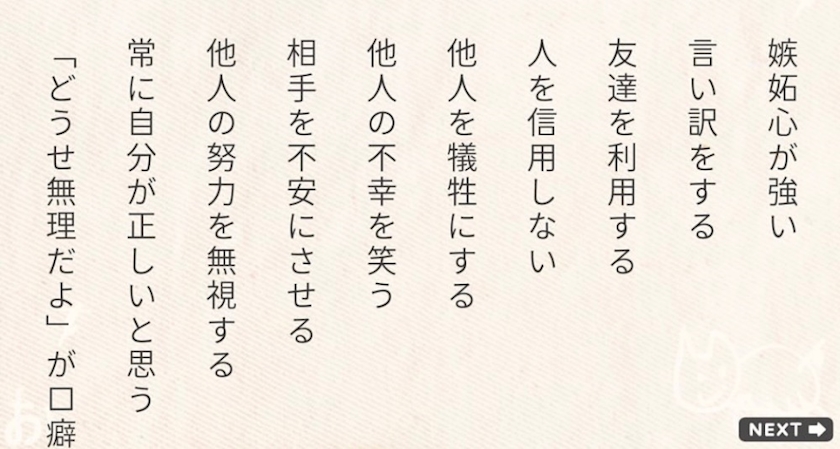 嫉妬心が強い
言い訳をする
友達を利用する
人を信用しない
他人を犠牲にする
他人の不幸を笑う
相手を不安にさせる
他人の努力を無視する
常に自分が正しいと思う
「どうせ無理だよ」が口癖
お
NEXT